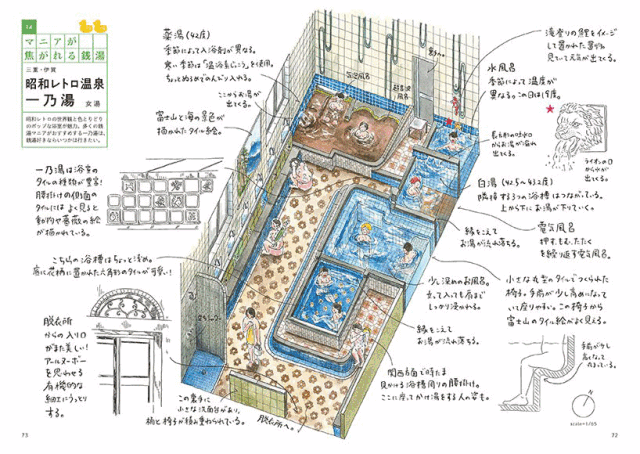 14
マニアが
焦がれる銭湯
三重・伊賀
昭和レトロ温泉
一乃湯 女湯
昭和レトロの世界観と色とりどり
のポップな浴室が魅力。多くの銭
湯マニアがおすすめする一乃湯は、
銭湯好きならいつかは行きたい。
薬湯(42度)
季節によって入浴剤が異なる。
寒い季節は「温浴素じっこう」を使用。
ちょっとぬるめでのんびり入れる。
ここからお湯が
出てくる。
富士山と海の景色が
描かれたタイル絵。
気泡風呂
超音波
風呂
滝登りの鯉をイメージ
して置かれた置物
見ていて元気が出てくる。
水風呂
季節によって温度が
異なる。この日は19度。
からお湯が溢れ
出てくる。
ライオンの口
から水が
出てくる。
白湯(42.5〜43.2度)
隣接する3つの浴槽はつながっている。
上から下にお湯が下りていく。
縁をこえて
お湯が流れ落ちる。
電気風呂
押す、もむ、たたく
を繰り返す電気風呂。
一乃湯は浴室の
タイルの種類が豊富!
腰掛けの側面の
タイルにはよく見ると
動物や薔薇の絵
が描かれている。
こちらの浴槽はちょっと浅め。
底に花柄に置かれた六角形のタイルが可愛い!
少し深めのお風呂。
立って入っても肩まで
しっかり浸かれる。
縁をこえて
お湯が流れ落ちる。
小さな丸型のタイルでつくられた
椅子。手前が少し高めになって
いて座りやすい。この椅子から
富士山のタイル絵がよく見える。
手前が少し
高くなって
いる。
脱衣所
からの入り口
がまた美しい!
アールヌーボー
を思わせる
有機的な
細工にうっとり
する。
関西方面で時たま
見かける浴槽周りの腰掛け。
ここに座ってかけ湯をする人の姿も。
この裏手に
小さな洗面台があり、
桶と椅子が積み重ねられている。
脱衣所へ。
73
72